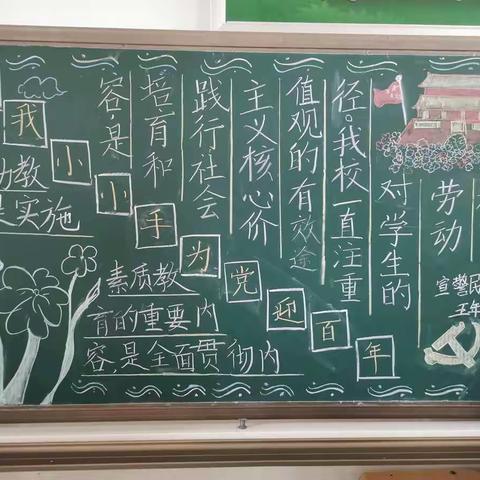 我小小手为党迎百年
动教
是实施
素质教
育的重要内
容,是全面贯彻内
容,是
培育和
践行社会
主义核心价
值观的有效途
径。我校一直注重
对学生的
劳动
五年